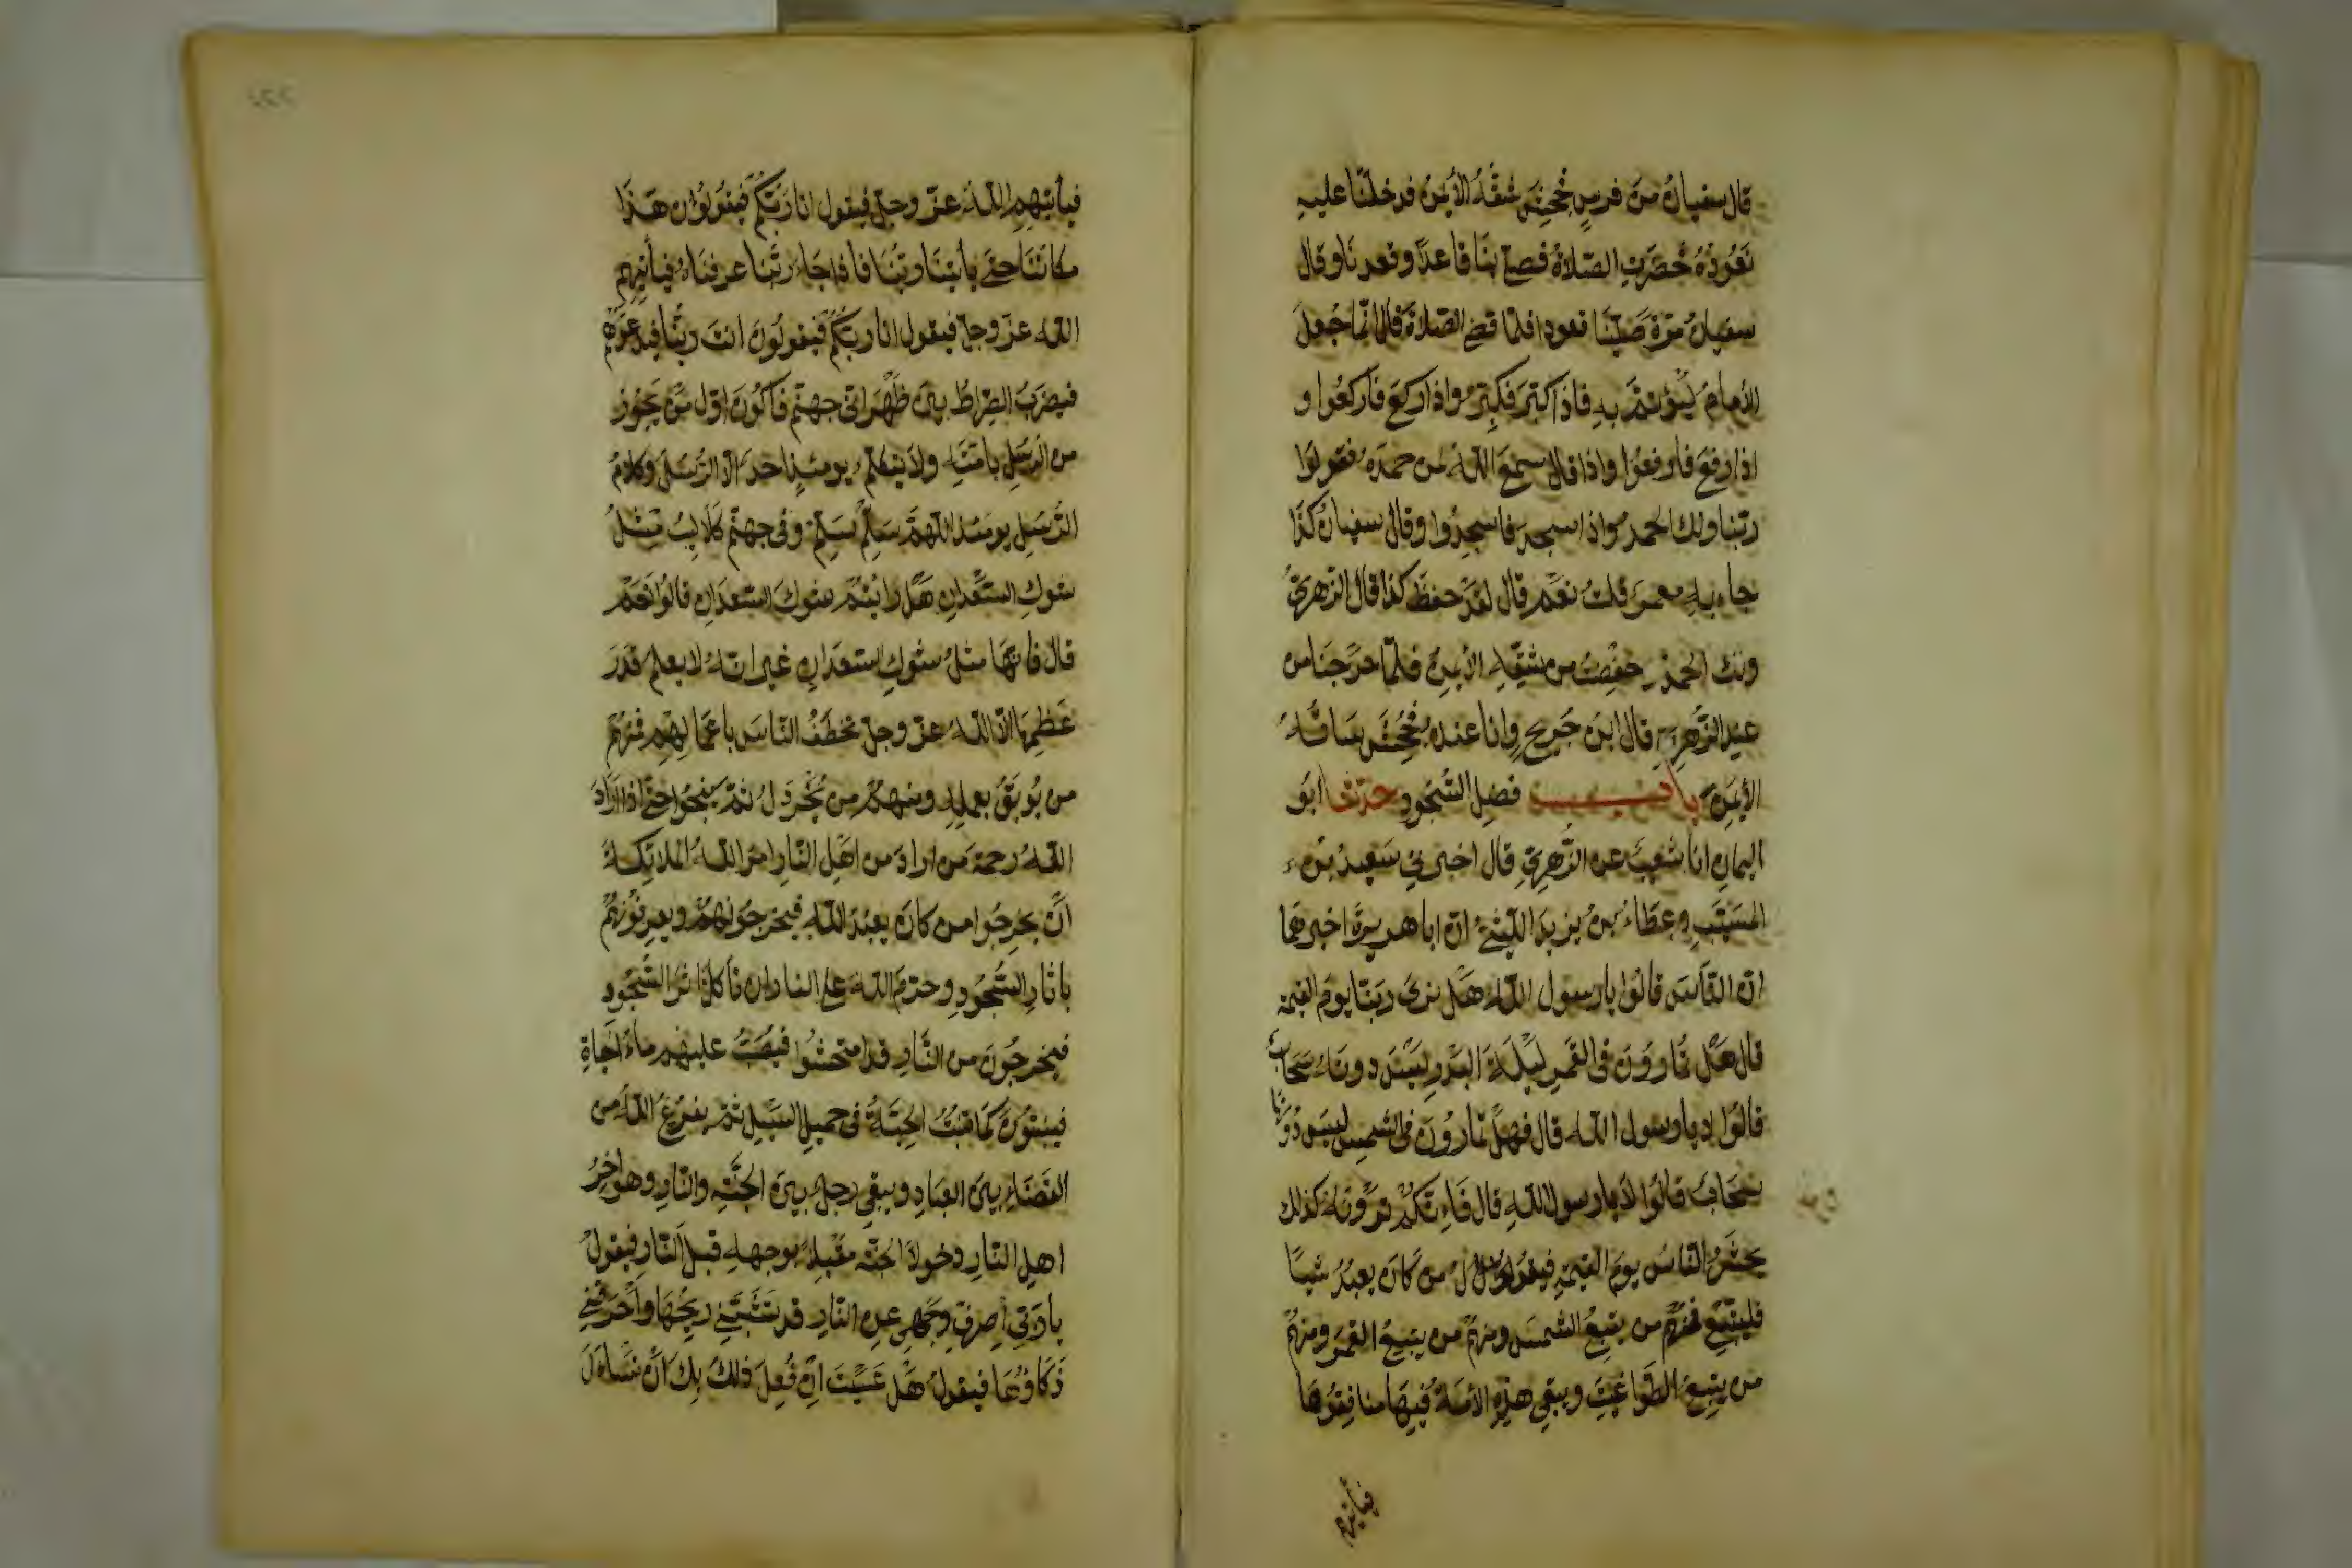 قال سفيان من فرس فجحش شقه الأيمن فدخلنا عليه
نعوذه فحضرت الصلاة فصلى بنا قاعدا وقعدنا وقال
سفيان مرة صلينا قعودا فلما قضى الصلاة قال انما جعل
الأمام ليؤتم به فاذا كبر فكبروا واذا ركع فاركعوا و
اذا رفع فارفعوا واذا قال سمع الله لمن حمده فقولوا
ربنا ولك الحمد واذا سجد فاسجدوا وقال سفيان كذا
جاء به معمر قلت نعم قال لقد حفظ كذا قال الزهري
ولك الحمد حفظت من شقه الأيمن فلما خرجنا من
عند الزهري قال ابن جريج وانا عنده فجحش ساقه
الأيمن باب فضل السجود حدثنا ابو
اليمان انا شعيب عن الزهري قال اخبرني سعيد بن
المسيب وعطاء بن يزيد الليثي ان ابا هريرة اخبرهما
ان الناس قالوا يا رسول الله هل نرى ربنا يوم القيمة
قال هل تمارون في القمر ليلة البدر ليس دونه سحاب
قالوا لا يا رسول الله قال فهل تمارون في الشمس ليس دونها
سحاب قالوا لا يا رسول الله قال فانكم ترونه كذلك
يحشر الناس يوم القيمة فيقول من كان يعبد شيئا
فليتبع فمنهم من يتبع الشمس ومنهم من يتبع القمر ومنهم
من يتبع الطواغيت ويبقى هذه الأمة فيها منافقوها
فيأتيهم
فيأتيهم الله عز وجل فيقول انا ربكم فيقولون هذا
مكاننا حتى يأتينا ربنا فاذا جاء ربنا عرفناه فيأتيهم
الله عز وجل فيقول انا ربكم فيقولون انت ربنا فيدعوهم
فيضرب الصراط بين ظهراني جهنم فاكون اول من يجوز
من الرسل بامته ولا يتكلم يومئذ احد الا الرسل وكلام
الرسل يومئذ اللهم سلم سلم وفي جهنم كلاليب مثل
شوك السعدان هل رأيتم شوك السعدان قالوا نعم
قال فانها مثل شوك السعدان غير انه لا يعلم قدر
عظمها الا الله عز وجل تخطف الناس باعمالهم فمنهم
من يوبق بعمله ومنهم من يخردل ثم ينجوا حتى اذا اراد
الله رحمة من اراد من اهل النار امر الله الملائكة
ان يخرجوا من كان يعبد الله فيخرجونهم ويعرفونهم
باثار السجود وحرم الله على النار ان تأكل اثر السجود
فيخرجون من النار قد امتحشوا فيصب عليهم ماء الحياة
فينبتون كما تنبت الحبة في حميل السيل ثم يفرغ الله من
القضاء بين العباد ويبقى رجل بين الجنة والنار وهو اخر
اهل النار دخولا الجنة مقبلا بوجهه قبل النار فيقول
يا رب اصرف وجهي عن النار قد قشبني ريحها واحرقني
ذكاؤها فيقول هل عسيت ان فعل ذلك بك ان تسأل